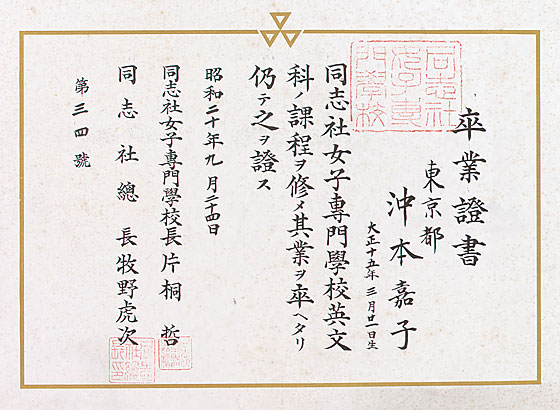 卒業證書
東京都
沖本嘉子
大正十五年三月廿一日生
同志社女子專門學校英文
科ノ課程ヲ修メ其業ヲ卒ヘタリ
仍テ之ヲ證ス
昭和二十年九月二十四日
同志社女子專門學校長片桐哲
同志社總長牧野虎次
第三四號
同志社
女子專
門學校